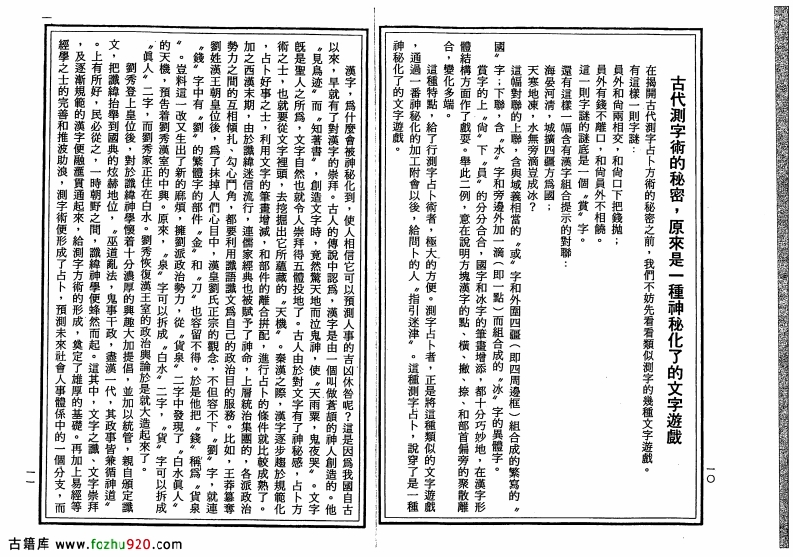 古代測字術的秘密，原來是一種神秘化了的文字遊戲
在揭開古代測字占卜方術的秘密之前，我們不妨先看看類似測字的幾種文字遊戲。
有這樣一則字謎：
員外和尙兩相交，和尙口下把錢拋；
員外有錢不離口，和尙員外不相饒。
這一則字謎的謎底是一個〝賞〞字。
還有這樣一幅含有漢字組合提示的對聯：
海晏河清，城擴四疆方爲國；
天寒地凍，水無旁滴豈成冰？
這幅對聯的上聯，含與域義相當的〝或〞字和外圍四疆（即四周邊框）組合成的繁寫的〝
國〞字；下聯，含〝水〞字和旁邊外加一滴（即一點）而組合成的〝冰〞字的異體字。
賞字的上〝尙〞下〝員〞的分分合合，國字和冰字的筆畫增添，都十分巧妙地，在漢字形
體結構方面作了戲耍。舉此二例，意在說明方塊漢字的點、橫、撇、捺、和部首偏旁的聚散離
合，變化多端。
這種特點，給了行測字占卜術者，極大的方便。測字占卜者，正是將這種類似的文字遊戲
，通過一番神秘化的加工附會以後，給問卜的人〝指引迷津〞。這種測字占卜，說穿了是一種
神秘化了的文字遊戲。
一〇
漢字，爲什麼會被神秘化到，使人相信它可以預測人事的吉凶休咎呢？這是因爲我國自古
以來，早就有了對漢字的崇拜。古人的傳說中認爲，漢字是由一個叫做蒼頡的神人創造的。他
〝見鳥迹〞而〝知著書〞，創造文字時，竟然驚天地而泣鬼神，使〝天雨粟，鬼夜哭〞。文字
旣是聖人之所爲，文字自然也就令人崇拜得五體投地了。古人由於對文字有了神秘感，占卜方
術之士，也就要從文字裡頭，去挖掘出它所蘊藏的〝天機〞。秦漢之際，漢字逐步趨於規範化
，占卜好事之士，利用文字的筆畫增減，和部件的離合拼配，進行占卜的條件就比較成熟了。
加之西漢末期，由於讖緯迷信流行，連儒家經典也被賦予了神命，上層統治集團的，各派政治
勢力之間的互相傾扎、勾心鬥角，都要利用讖語讖文爲自己的政治目的服務。比如，王莽篡奪
劉姓漢王朝皇位後，爲了抹掉人們心目中，漢皇劉氏正宗的觀念，不但容不下〝劉〞字，就連
〝錢〞字中有〝劉〞的繁體字的部件〝金〞和〝刀〞也容留不得。於是他把〝錢〞稱爲〝貨泉
〞。豈料這一改又生出了新的麻煩，擁劉派政治勢力，從〝貨泉〞二字中發現了〝白水眞人〞
的天機，預告着劉秀漢室的中興。原來，〝泉〞字可以拆成〝白水〞二字，〝貨〞字可以拆成
〝眞人〞二字，而劉秀家正住在白水。劉秀恢復漢王室的政治輿論於是就大造起來了。
劉秀登上皇位後，對於讖緯神學懷着十分濃厚的興趣大加提倡，並加以統管，親自頒定讖
文，把讖緯抬舉到國典的炫赫地位，〝巫道亂法，鬼事干政，盡漢一代，其政事皆兼循神道〞
。上有所好，民必從之，一時朝野之間，讖緯神學便蜂然而起。這其中，文字之讖、文字崇拜
，及逐漸規範的漢字便融滙貫通起來，給測字方術的形成，奠定了雄厚的基礎。再加上易經等
經學之士的完善和推波助浪，測字術便形成了占卜，預測未來社會人事體係中的一個分支，而
一一
古籍库 www.fozhu920.com